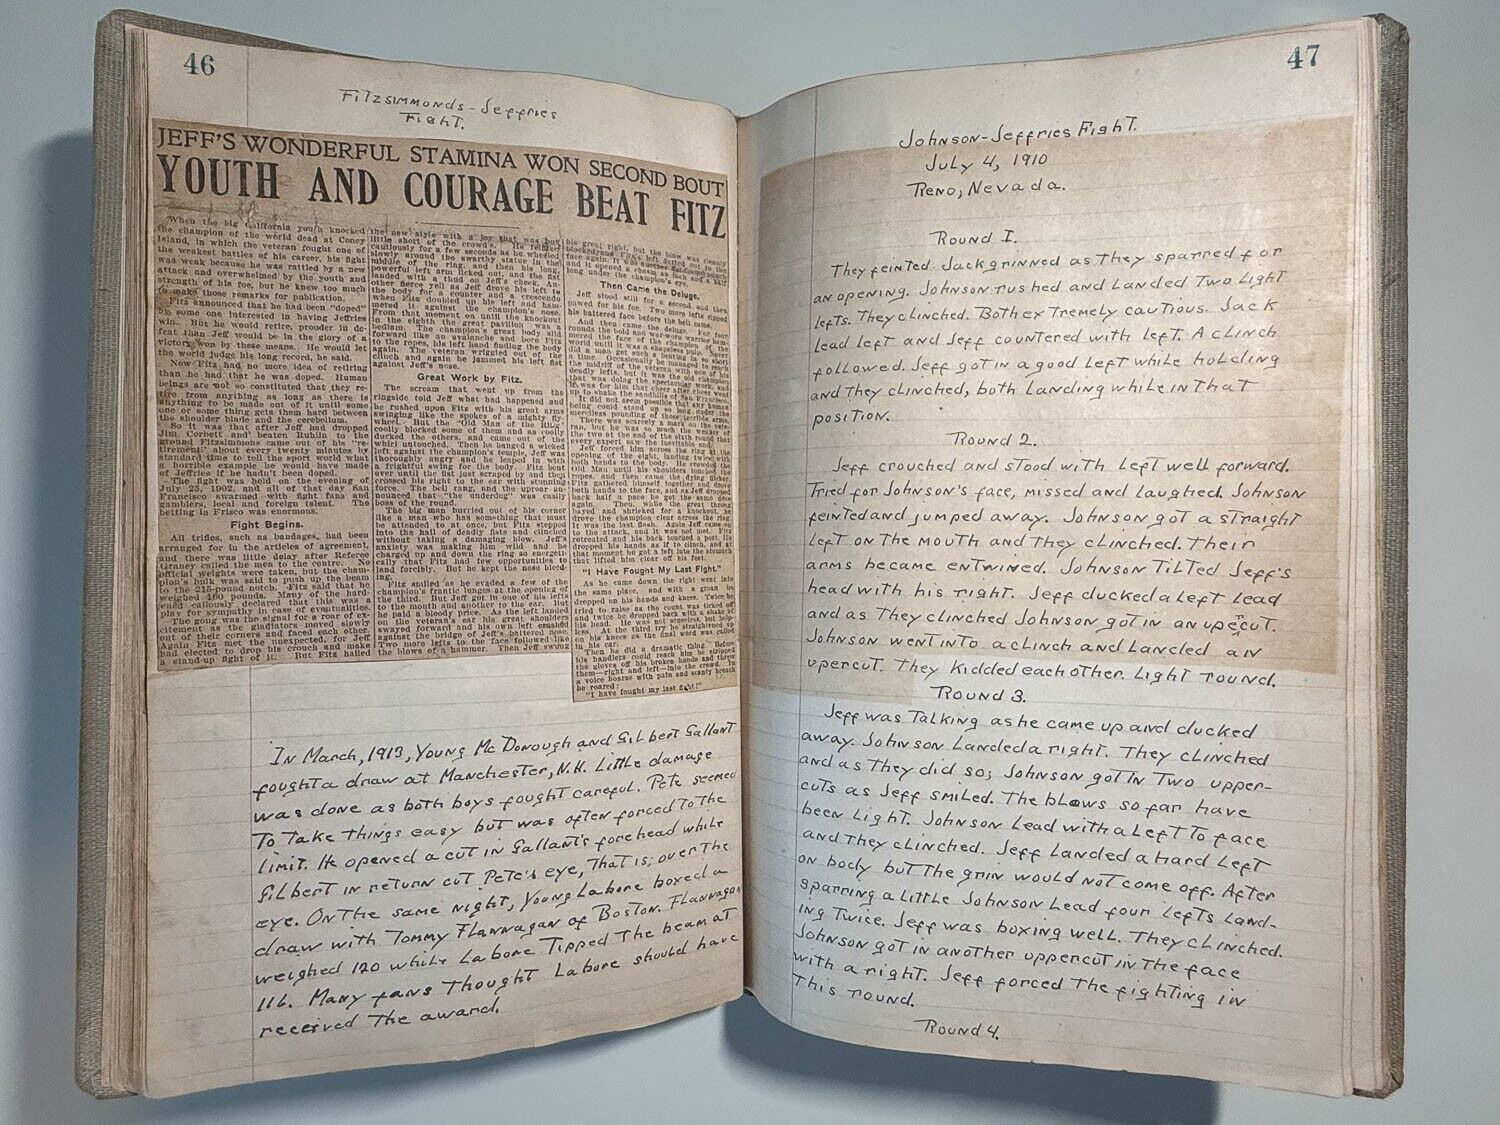 46
Fitzsimmonds-Jeffries
Fight.
JEFF'S WONDERFUL STAMINA WON SECOND BOUT
YOUTH AND COURAGE BEAT FITZ
When the big California youth knocked
the champion of the world dead at Coney
Island, in which the veteran fought one of
the weakest battles of his career, his fight
was weak because he was rattled by a new
attack and overwhelmed by the youth and
strength of his foe, but he knew too much
to make those remarks for publication.
Fitz announced that he had been "doped"
by some one interested in having Jeffries
win. But he would retire, prouder in de-
feat than Jeff would be in the glory of a
victory won by these means. He would let
the world judge his long record, he said.
Now Fitz had no more idea of retiring
than he had that he was doped. Human
beings are not so constituted that they re-
tire from anything as long as there is
anything to be made out of it until some
one or some thing gets them hard between
the shoulder blade and the cerebellum.
So it was that after Jeff had dropped
Jim Corbett and beaten Ruhlin to the
ground Fitzsimmons came out of his "re-
tirement" about every twenty minutes by
standard time to tell the sport world what
a horrible example he would have made
of Jeffries if he hadn't been doped.
The fight was held on the evening of
July 25, 1902, and all of that day San
Francisco swarmed with fight fans and
gamblers, local and foreign talent. The
betting in Frisco was enormous.
Fight Begins.
All trifles, such as bandages, had been
arranged for in the articles of agreement,
and there was little delay after Referee
Graney called the men to the centre. No
official weights were taken, but the cham-
pion's bulk was said to push up the beam
to the 215-pound notch. Fitz said that he
weighed 160 pounds. Many of the hard-
ened callously declared that this was a
play for sympathy in case of eventualities.
The gong was the signal for a roar of ex-
citement as the gladiators moved slowly
out of their corners and faced each other.
Again Fitz met the unexpected, for Jeff
had elected to drop his crouch and make
a stand-up fight of it. But Fitz hailed
the new style with a joy that was but
little short of the crowd's. He
cautiously for a few seconds as he wheeled
slowly around the swarthy statue in the
middle of the ring, and then his long,
powerful left arm licked out, and the fist
landed with a thud on Jeff's cheek. An-
other fierce yell as Jeff drove his left to
the body for a counter and a crescendo
when Fitz doubled up his left and ham-
mered it against the champion's nose.
From that moment on until the knockout
in the eighth the great pavilion was a
bedlam. The champion's great body slid
forward like an avalanche and bore Fitz
to the ropes, his left hand finding the body
again. The veteran wriggled out of the
clinch and again he jammed his left fist
against Jeff's nose.
Great Work by Fitz.
The scream that went up from the
ringside told Jeff what had happened and
he rushed upon Fitz with his great arms
swinging like the spokes of a mighty fly-
wheel. But the "Old Man of the Ring"
coolly blocked some of them and as coolly
ducked the others, and came out of the
whirl untouched. Then he banged a wicked
left against the champion's temple, Jeff was
thoroughly angry and he leaped in with
a frightful swing for the body. Fitz bent
over until the fist just scraped by and then
crossed his right to the ear with stunning
force. The bell rang, and the uproar an-
nounced that "the underdog" was easily
boss of the round.
The big man hurried out of his corner
like a man who has something that must
be attended to at once, but Fitz stepped
into the hail of deadly fists and clinched
without taking a damaging blow. Jeff's
anxiety was making him wild and he
charged up and down the ring so energeti-
cally that Fitz had few opportunities to
land forcibly. But he kept the nose bleed-
ing.
Fitz smiled as he evaded a few of the
champion's frantic lunges at the opening of
the third. But Jeff got in one of his lefts
to the mouth and another to the ear. But
he paid a bloody price. As the left landed
on the veteran's ear his great shoulders
swayed forward and his own left crashed
against the bridge of Jeff's battered nose.
Two more lefts to the face followed like
the blows of a hammer. Then Jeff swung
his great right, but the blow was cleanly
blocked and Fitz's left darted out to the
face again.
long under the champion's eye.
Then Came the Deluge.
Jeff stood still for a second and then
pawed for his foe. Two more lefts ripped
his battered face before the bell came.
And then came the deluge. For four
rounds the bold and war-worn warrior ham-
mered the face of the champion of the
world until it was a shapeless pulp. Never
did a man get such a beating in so short
a time. Occasionally he managed to reach
the midriff of the veteran with one of his
deadly lefts, but it was the old champion
that was doing the spectacular work, and
it was for him that cheer after cheer went
up to shake the sandhills of San Francisco.
It did not seem possible that any human
being could stand up so long under the
merciless pounding of those terrible arms.
There was scarcely a mark on the vete-
ran, but he was so much the weaker of
the two at the end of the sixth round that
every expert saw the inevitable end.
Jeff forced him across the ring at the
opening of the eighth, landing twice with
both hands to the body. He crowded the
old man until his shoulders touched the
ropes, and then came the dying flicker.
Fitz gathered himself together and drove
both hands to the face, and as Jeff dropped
back half a pace he got the same dose
again. Then, while the great throng
bayed and shrieked for a knockout, he
drove the champion clear across the ring.
It was the last flash. Again Jeff came on
to the attack, and it was not met. Fitz
retreated and his back touched a post. He
dropped his hands as if to clinch, and at
that moment he got a left into the stomach
that lifted him clear off his feet.
"I Have Fought My Last Fight."
As he came down the right went into
the same place, and with a groan he
dropped on his hands and knees. Twice he
tried to raise as the count was ticked off
and twice he dropped back with a shake of
his head. He was not senseless, but help-
less. At the third try he straightened up
on his knees as the final word was called
in his ear.
Then he did a dramatic thing. Before
his handlers could reach him he stripped
the gloves off his broken hands and threw
them—right and left—into the crowd. In
a voice hoarse with pain and scanty breath
he roared:
"I have fought my last fight!"
In March, 1913, Young McDonough and Gilbert Gallant
fought a draw at Manchester, N.H. Little damage
was done as both boys fought careful. Pete seemed
to take things easy but was often forced to the
limit. He opened a cut in Gallant's forehead while
Gilbert in return cut Pete's eye, that is; over the
eye. On the same night, Young Labore boxed a
draw with Tommy Flannagan of Boston. Flannagan
weighed 120 while Labore tipped the beam at
116. Many fans thought Labore should have
received the award.
47
Johnson-Jeffries Fight.
July 4, 1910
Reno, Nevada.
Round I.
They feinted. Jack grinned as they sparred for
an opening. Johnson rushed and landed two light
lefts. They clinched. Both extremely cautious. Jack
lead left and Jeff countered with left. A clinch
followed. Jeff got in a good left while holding
and they clinched, both landing while in that
position.
Round 2.
Jeff crouched and stood with left well forward.
Tried for Johnson's face, missed and laughed. Johnson
feinted and jumped away. Johnson got a straight
left on the mouth and they clinched. Their
arms became entwined. Johnson tilted Jeff's
head with his right. Jeff ducked a left lead
and as they clinched Johnson got in an upercut.
Johnson went into a clinch and landed an
upercut. They kidded each other. Light round.
Round 3.
Jeff was talking as he came up and ducked
away. Johnson landed a right. They clinched
and as they did so; Johnson got in two upper-
cuts as Jeff smiled. The blows so far have
been light. Johnson lead with a left to face
and they clinched. Jeff landed a hard left
on body but the grin would not come off. After
sparring a little Johnson lead four lefts land-
ing twice. Jeff was boxing well. They clinched.
Johnson got in another uppercut in the face
with a right. Jeff forced the fighting in
this round.
Round 4.